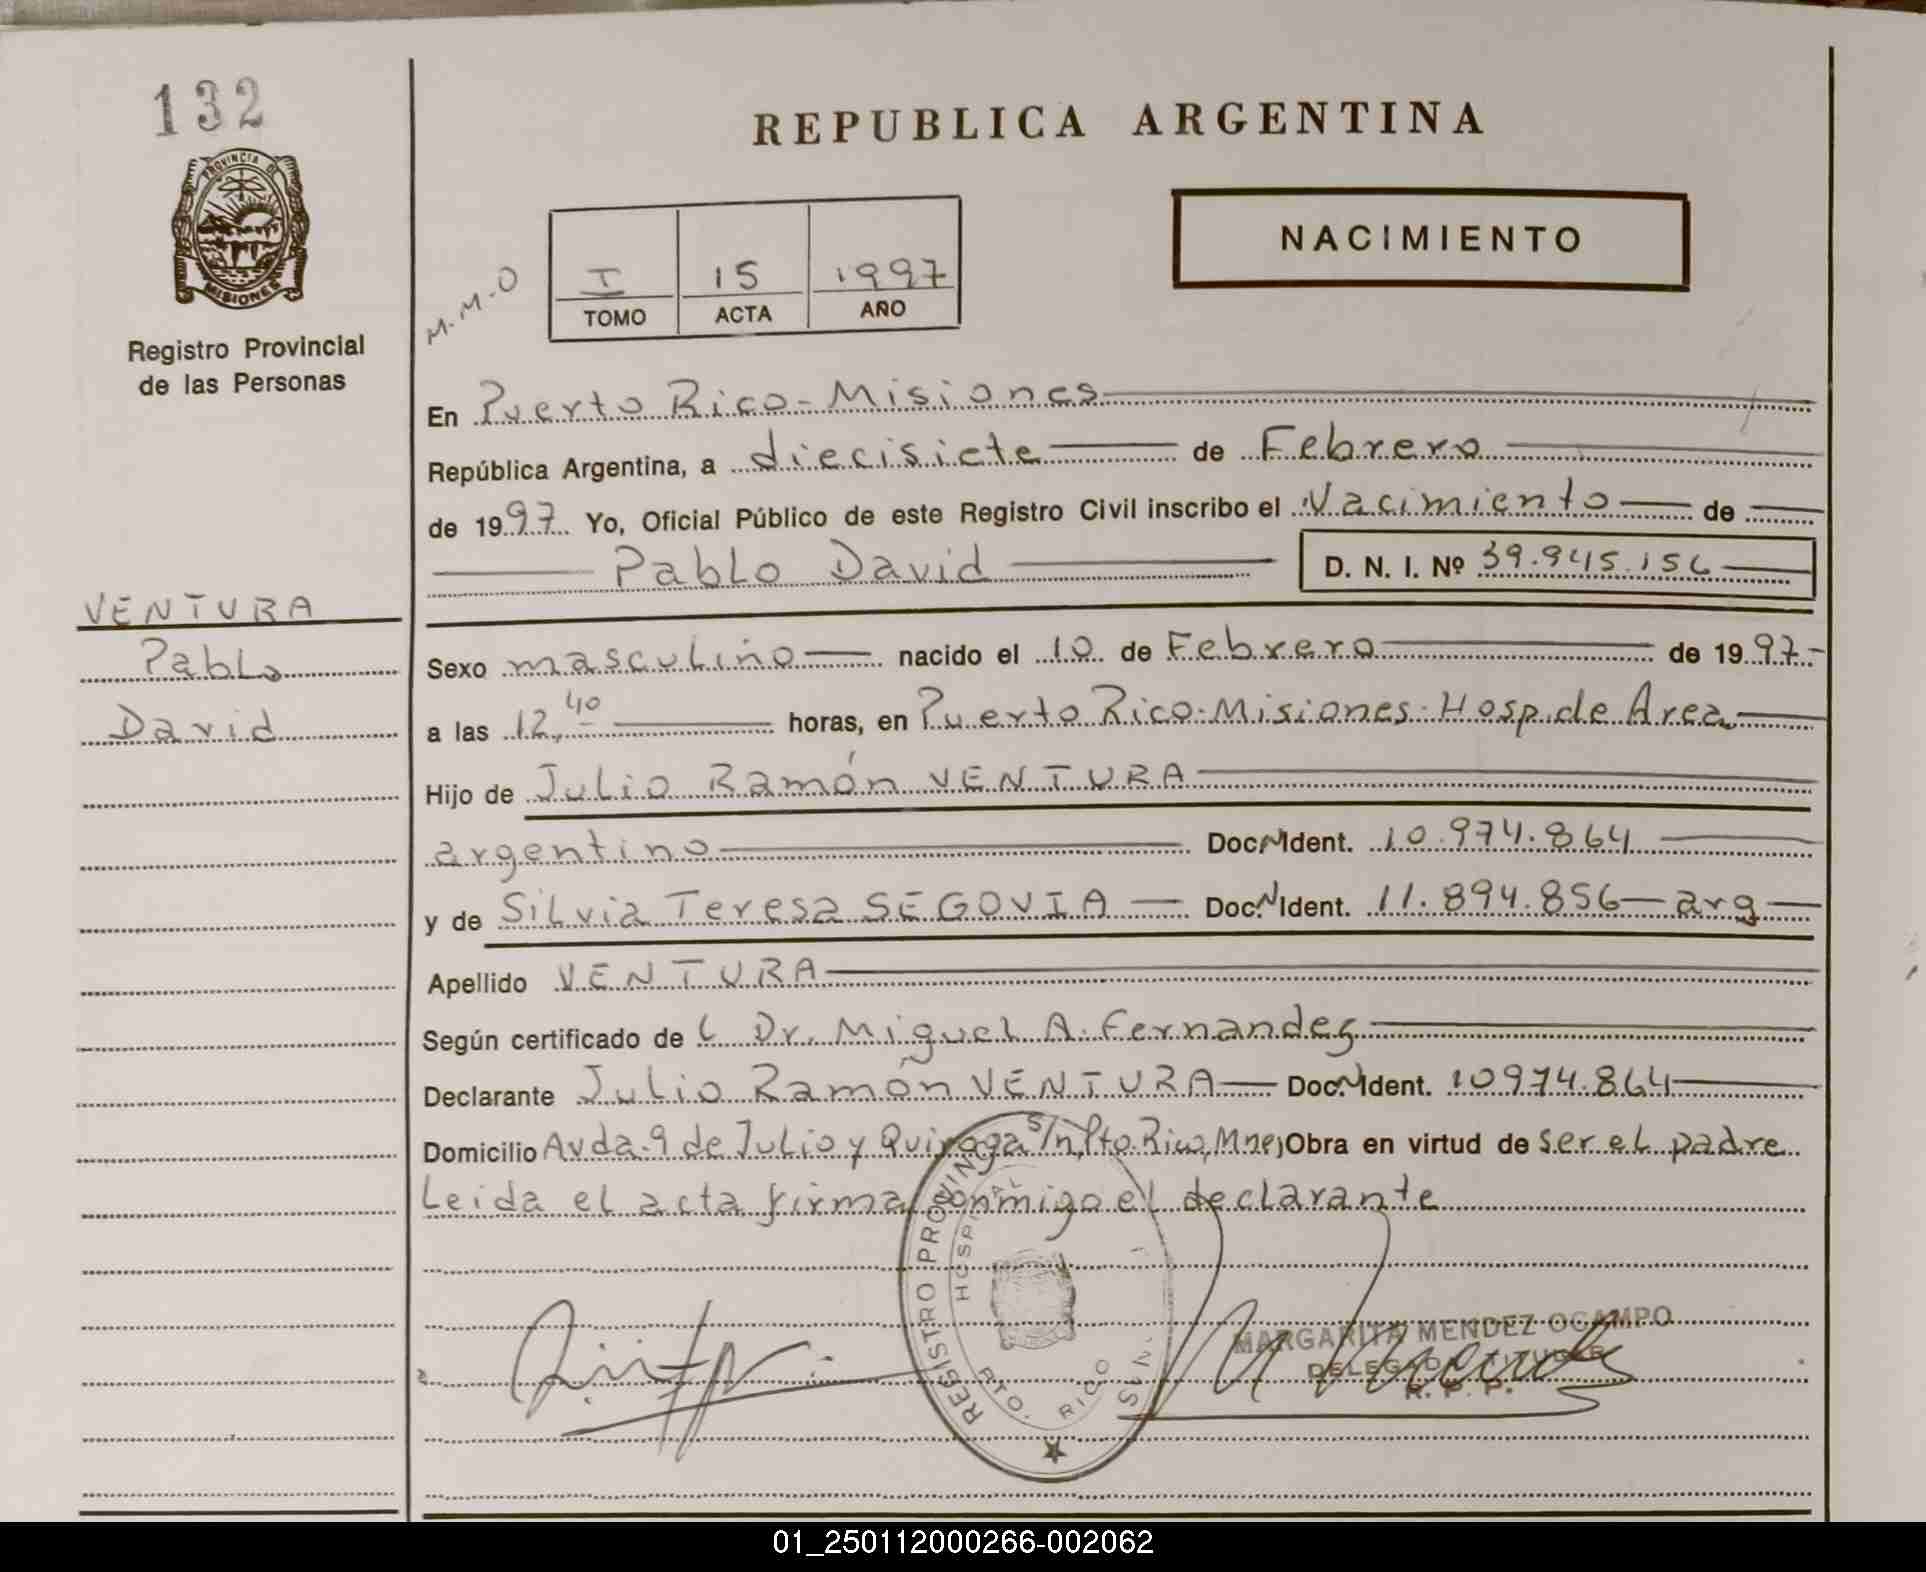 132
REPUBLICA ARGENTINA
PROVINCIA DE
MISIONES
Registro Provincial
de las Personas
M.M.O
I 15 1997
TOMO ACTA AÑO
NACIMIENTO
En Puerto Rico - Misiones
República Argentina, a diecisiete de Febrero
de 1997 Yo, Oficial Público de este Registro Civil inscribo el Nacimiento de
Pablo David D. N. I. Nº 39.945.156
VENTURA
Pablo
David
Sexo masculino nacido el 10 de Febrero de 1997-
a las 12,40 horas, en Puerto Rico-Misiones-Hosp.de Area
Hijo de Julio Ramón VENTURA
argentino Doc.N.Ident. 10.974.864
y de Silvia Teresa SEGOVIA Doc.N.Ident. 11.894.856-arg
Apellido VENTURA
Según certificado de L Dr. Miguel A. Fernandez
Declarante Julio Ramón VENTURA Doc.N.Ident. 10974.864
Domicilio Avda. 9 de Julio y Quiroga S/n, Pto. Rico, Mnes Obra en virtud de ser el padre
Leida el acta firma conmigo el declarante
REGISTRO PROVIN
HOSPITAL
PTO. RICO
MARGARITA MENDEZ OCAMPO
DELEGADA TITULAR
R. P. P.
01_250112000266-002062